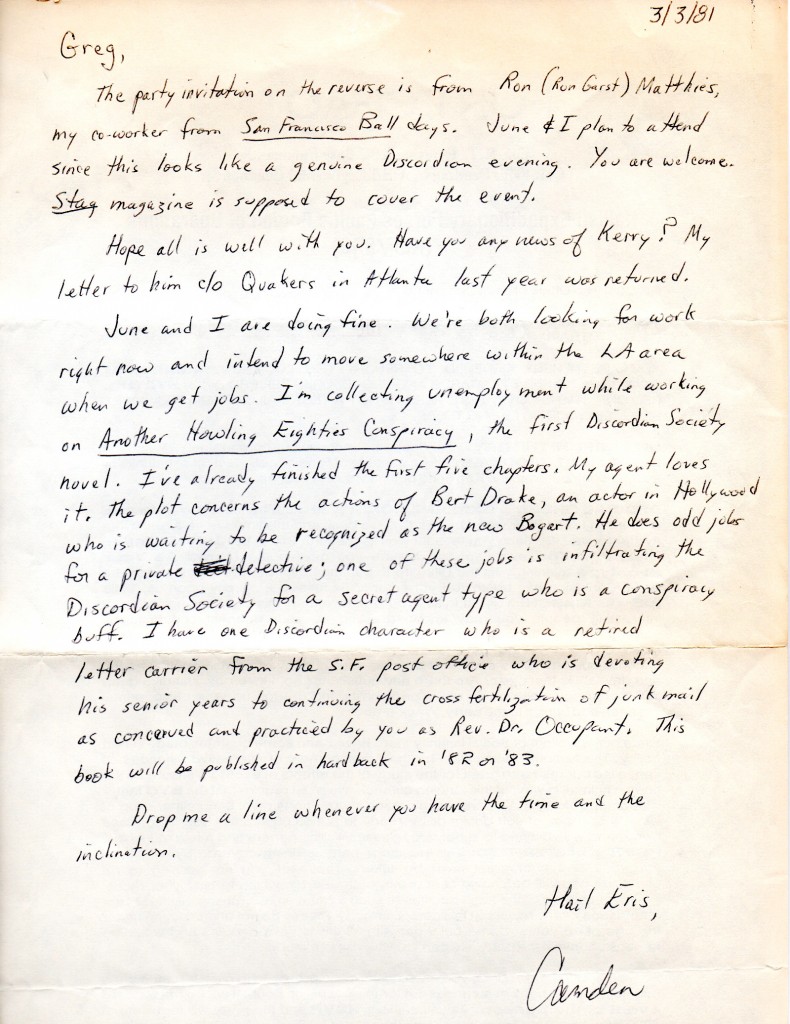 3/3/81
Greg,
The party invitation on the reverse is from Ron (Ron Garst) Matthies,
my co-worker from San Francisco Ball days. June & I plan to attend
since this looks like a genuine Discordian evening. You are welcome.
Stag magazine is supposed to cover the event.
Hope all is well with you. Have you any news of Kerry? My
letter to him c/o Quakers in Atlanta last year was returned.
June and I are doing fine. We're both looking for work
right now and intend to move somewhere within the LA area
when we get jobs. I'm collecting unemployment while working
on Another Howling Eighties Conspiracy, the first Discordian Society
novel. I've already finished the first five chapters. My agent loves
it. The plot concerns the actions of Bert Drake, an actor in Hollywood
who is waiting to be recognized as the new Bogart. He does odd jobs
for a private detective; one of these jobs is infiltrating the
Discordian Society for a secret agent type who is a conspiracy
buff. I have one Discordian character who is a retired
letter carrier from the S.F. post office who is devoting
his senior years to continuing the cross fertilization of junk mail
as concerved and practiced by you as Rev. Dr. Occupant. This
book will be published in hardback in '82 or '83.
Drop me a line whenever you have the time and the
inclination.
Hail Eris,
Camden